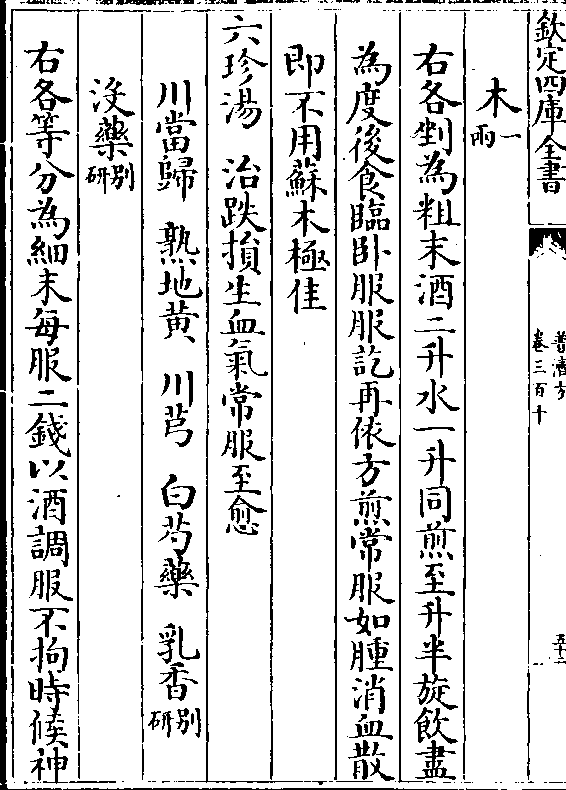 欽定四庫全書
普濟方
卷三百十
五十二
木一兩
右各剉為粗末酒二升水一升同煎至升半旋飲盡
為度後食臨卧服服訖再依方煎常服如腫消血散
即不用蘇木極佳
六珍湯 治跌損生血氣常服至愈
川當歸 熟地黄 川芎 白芍藥 乳香别研
没藥别研
右各等分為細末每服二錢以酒調服不拘時候神